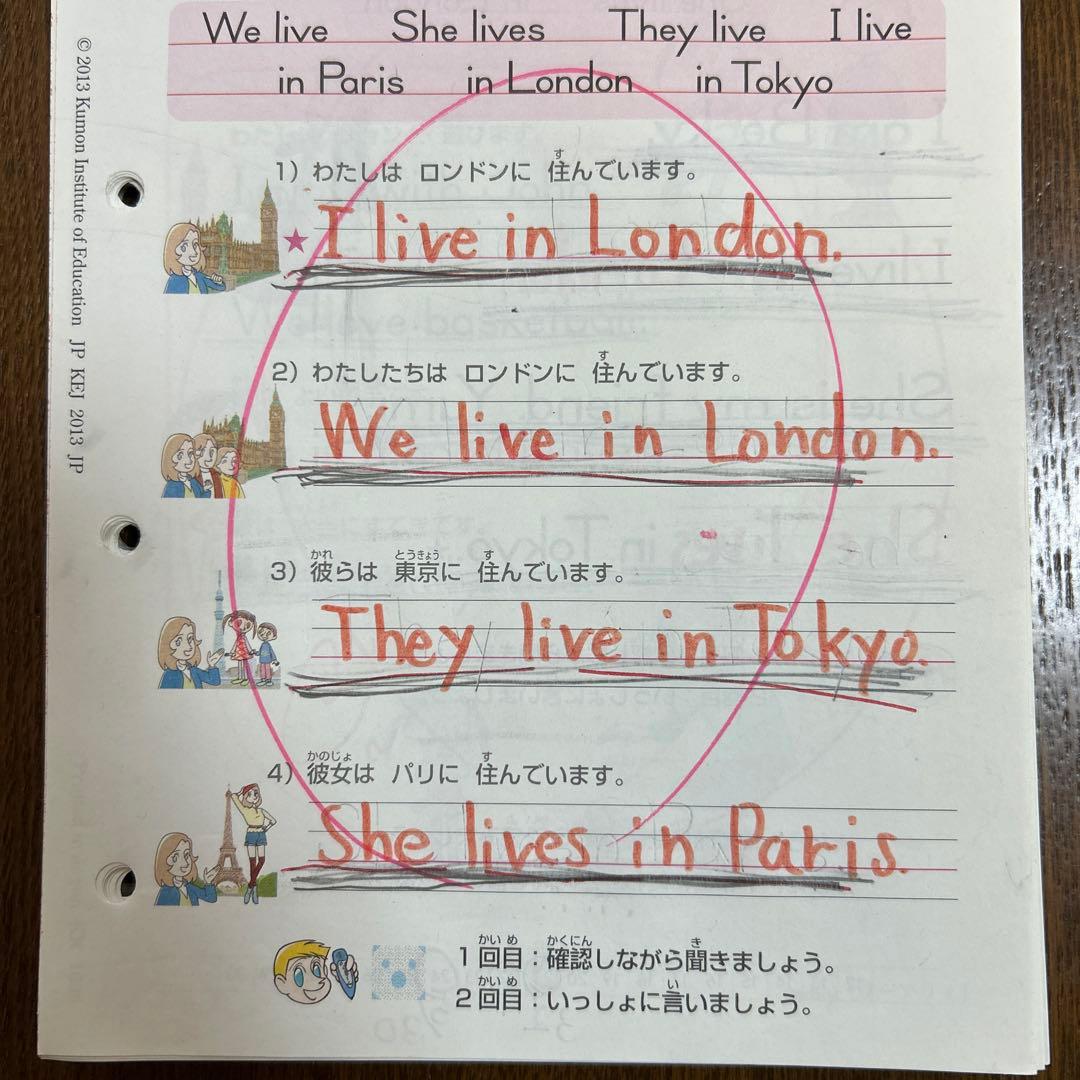 We live She lives They live I live
in Paris in London in Tokyo
© 2013 Kumon Institute of Education JP KEJ 2013 JP
1) わたしは ロンドンに 住んでいます。
す
★ I live in London.
2) わたしたちは ロンドンに 住んでいます。
す
We live in London.
3) 彼らは 東京に 住んでいます。
かれ とうきょう す
They live in Tokyo.
4) 彼女は パリに 住んでいます。
かのじょ す
She lives in Paris.
1回目:確認しながら聞きましょう。
かいめ かくにん き
2回目:いっしょに言いましょう。
かいめ い